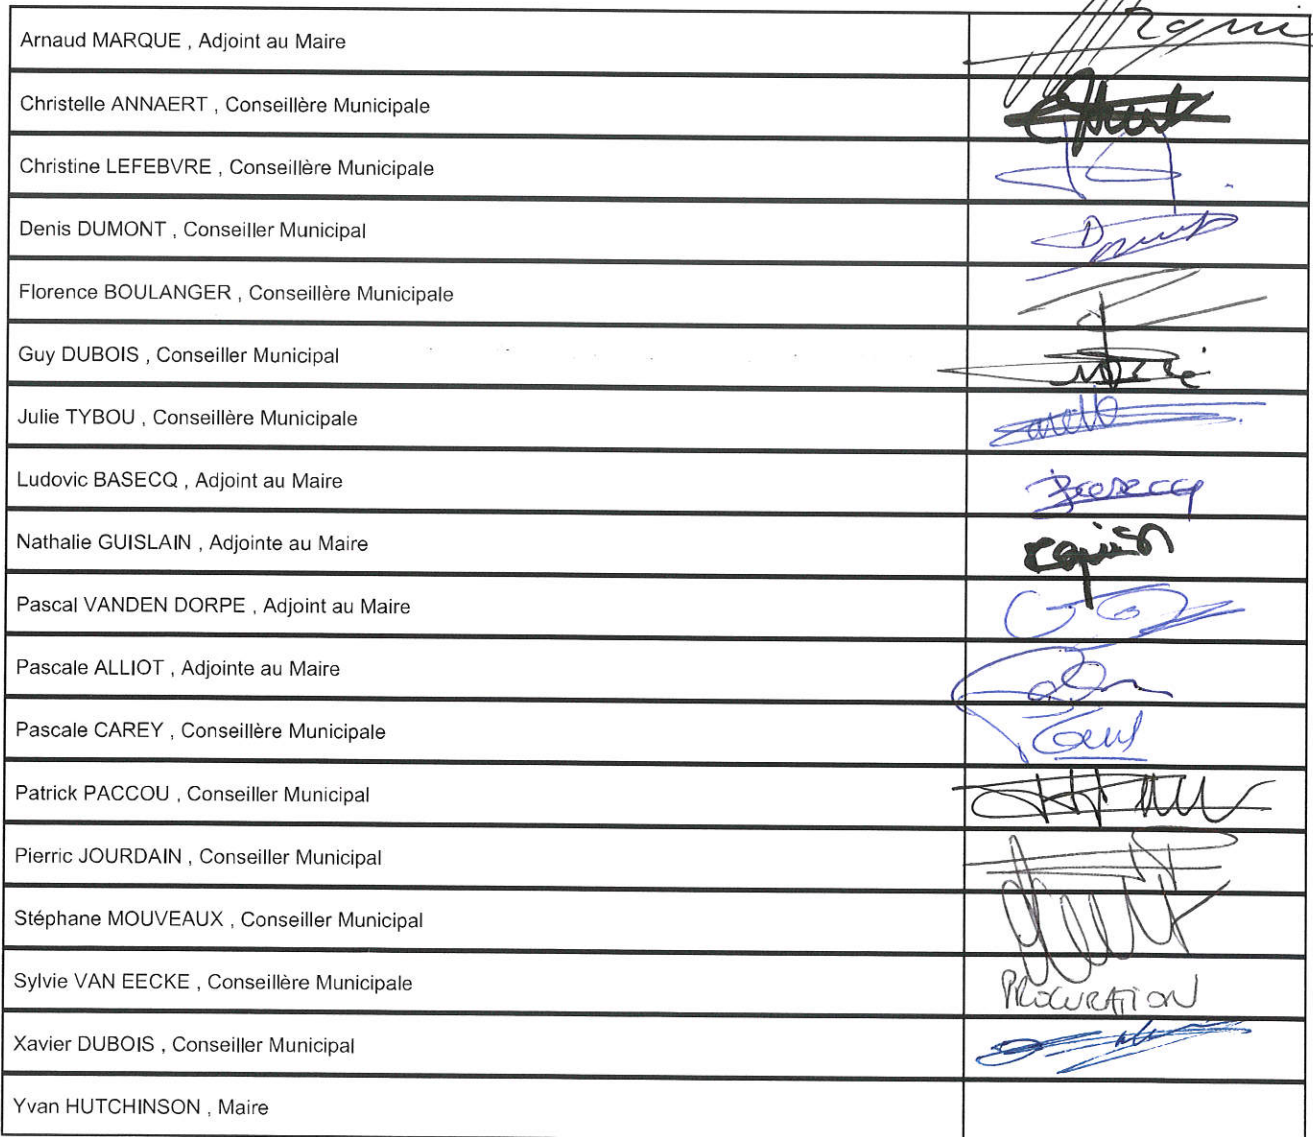 Arnaud MARQUE , Adjoint au Maire
Christelle ANNAERT , Conseillère Municipale
Christine LEFEBVRE , Conseillère Municipale
Denis DUMONT , Conseiller Municipal
Florence BOULANGER , Conseillère Municipale
Guy DUBOIS , Conseiller Municipal
Julie TYBOU , Conseillère Municipale
Ludovic BASECQ , Adjoint au Maire Basecq
Nathalie GUISLAIN , Adjointe au Maire
Pascal VANDEN DORPE , Adjoint au Maire
Pascale ALLIOT , Adjointe au Maire
Pascale CAREY , Conseillère Municipale
Patrick PACCOU , Conseiller Municipal
Pierric JOURDAIN , Conseiller Municipal
Stéphane MOUVEAUX , Conseiller Municipal
Sylvie VAN EECKE , Conseillère Municipale PROCURATION
Xavier DUBOIS , Conseiller Municipal
Yvan HUTCHINSON , Maire